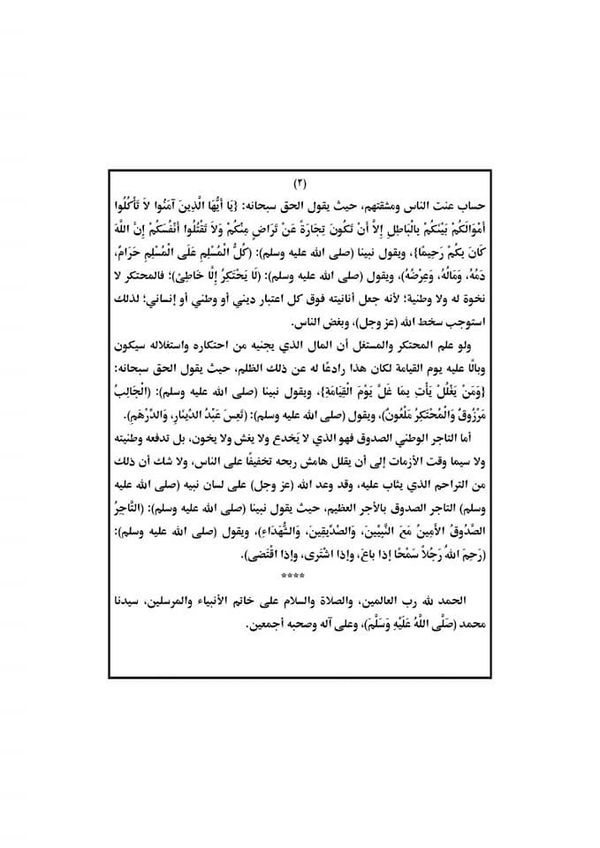 (٢)
حساب عنت الناس ومشقتهم، حيث يقول الحق سبحانه: {يَا أَيُّهَا الَّذِينَ آمَنُوا لاَ تَأْكُلُوا
أَمْوَالَكُمْ بَيْنَكُمْ بِالْبَاطِلِ إِلاَّ أَنْ تَكُونَ تِجَارَةً عَنْ تَرَاضٍ مِنْكُمْ وَلاَ تَقْتُلُوا أَنْفُسَكُمْ إِنَّ اللَّهَ
كَانَ بِكُمْ رَحِيمًا}، ويقول نبينا (صلى الله عليه وسلم): (كُلُّ الْمُسْلِمِ عَلَى الْمُسْلِمِ حَرَامٌ،
دَمُهُ، وَمَالُهُ، وَعِرْضُهُ)، ويقول (صلى الله عليه وسلم): (لَا يَحْتَكِرُ إِلَّا خَاطِئٌ)؛ فالمحتكر لا
نخوة له ولا وطنية؛ لأنه جعل أنانيته فوق كل اعتبار ديني أو وطني أو إنساني؛ لذلك
استوجب سخط الله (عز وجل)، وبغض الناس.
ولو علم المحتكر والمستغل أن المال الذي يجنيه من احتكاره واستغلاله سيكون
وبالًا عليه يوم القيامة لكان هذا رادعًا له عن ذلك الظلم، حيث يقول الحق سبحانه:
{وَمَنْ يَغْلُلْ يَأْتِ بِمَا غَلَّ يَوْمَ الْقِيَامَةِ}، ويقول نبينا (صلى الله عليه وسلم): (الْجَالِبُ
مَرْزُوقٌ وَالْمُحْتَكِرُ مَلْعُونٌ)، ويقول (صلى الله عليه وسلم): (تَعِسَ عَبْدُ الدِّينَارِ، وَالدِّرْهَمِ).
أما التاجر الوطني الصدوق فهو الذي لا يَخدع ولا يغش ولا يخون، بل تدفعه وطنيته
ولا سيما وقت الأزمات إلى أن يقلل هامش ربحه تخفيفًا على الناس، ولا شك أن ذلك
من التراحم الذي يثاب عليه، وقد وعد الله (عز وجل) على لسان نبيه (صلى الله عليه
وسلم) التاجر الصدوق بالأجر العظيم، حيث يقول نبينا (صلى الله عليه وسلم): (التَّاجِرُ
الصَّدُوقُ الأَمِينُ مَعَ النَّبِيِّينَ، وَالصِّدِّيقِينَ، وَالشُّهَدَاءِ)، ويقول (صلى الله عليه وسلم):
(رَحِمَ اللهُ رَجُلاً سَمْحًا إذا باعَ، وإذا اشْتَرى، وإذا اقْتَضى).
****
الحمد لله رب العالمين، والصلاة والسلام على خاتم الأنبياء والمرسلين، سيدنا
محمد (صَلَّى اللَّهُ عَلَيْهِ وَسَلَّمَ)، وعلى آله وصحبه أجمعين.